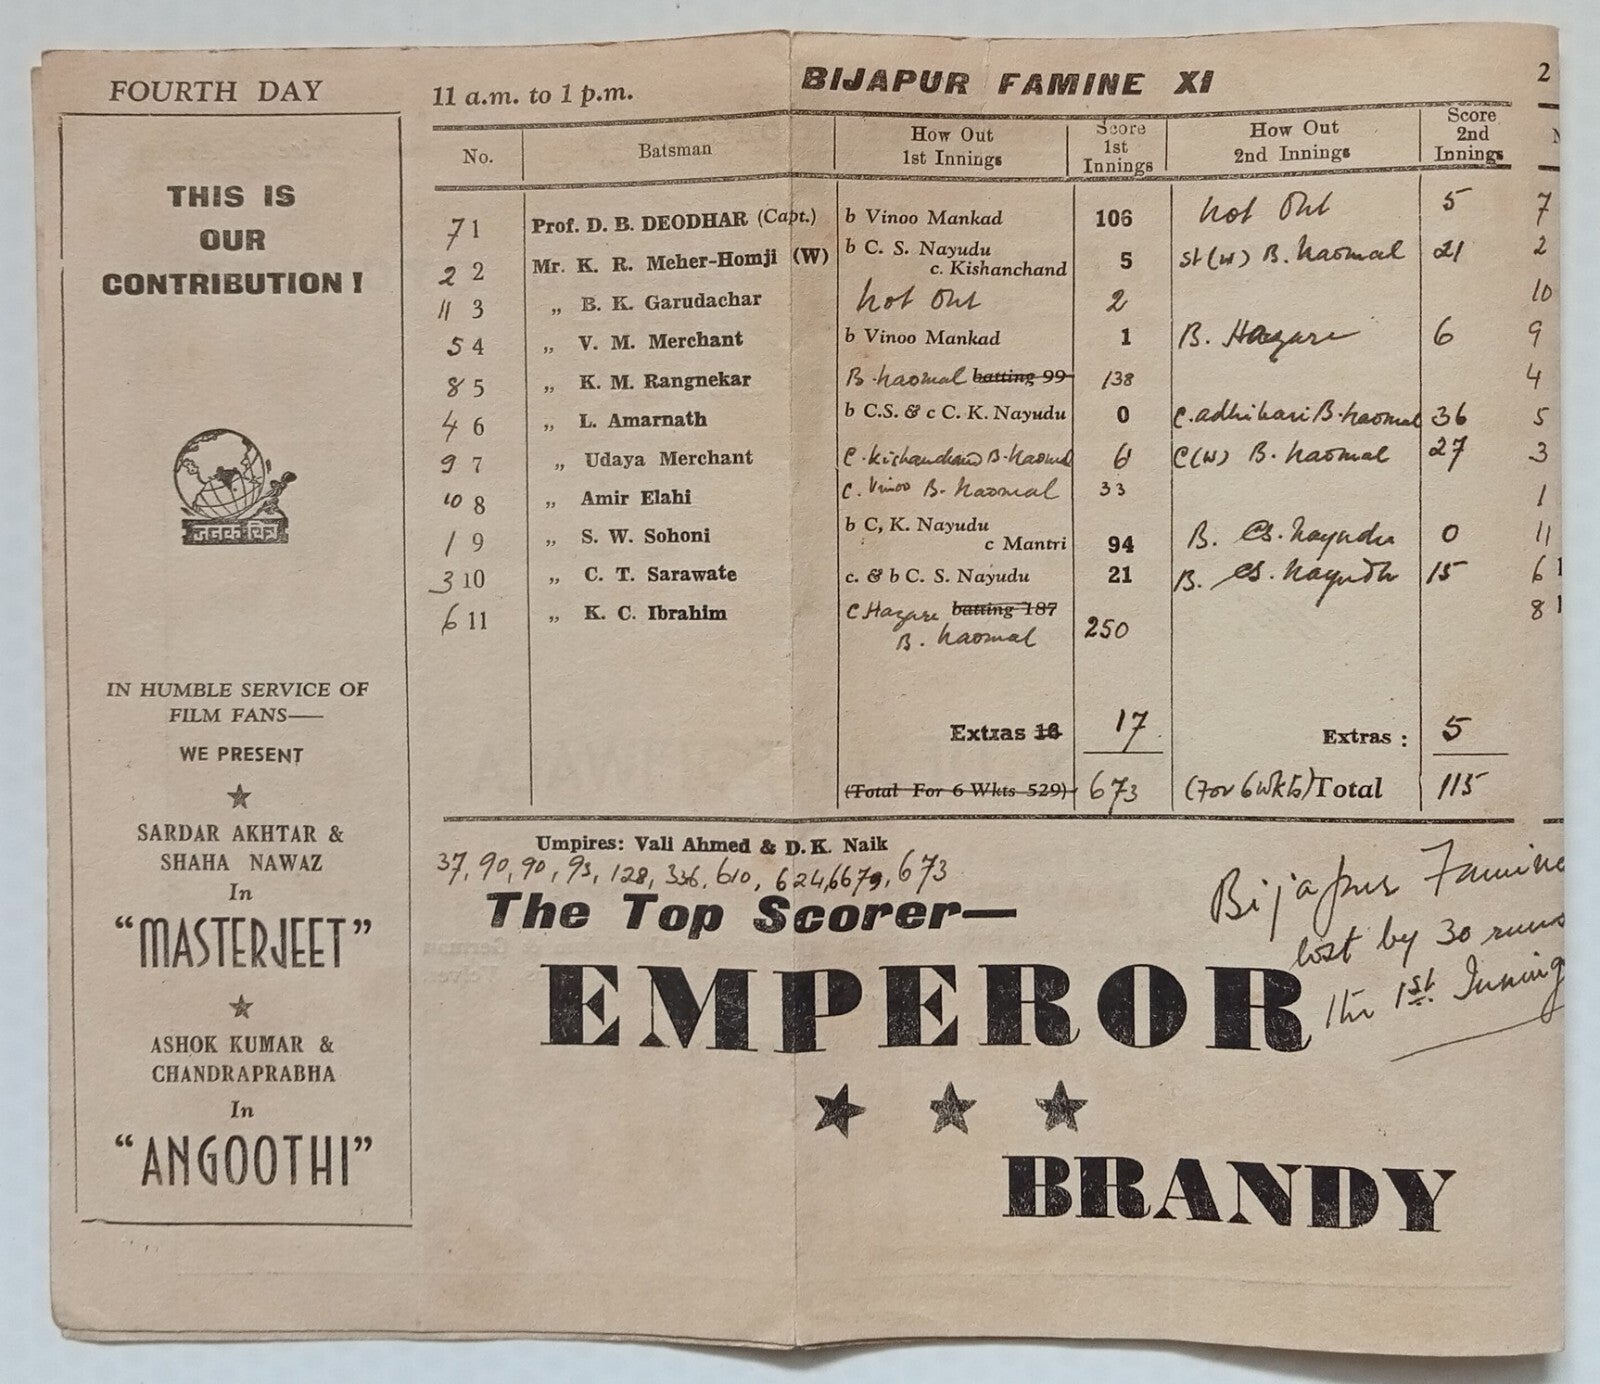 FOURTH DAY
THIS IS
OUR
CONTRIBUTION !
जनक चित्र
IN HUMBLE SERVICE OF
FILM FANS—
WE PRESENT
SARDAR AKHTAR &
SHAHA NAWAZ
In
"MASTERJEET"
ASHOK KUMAR &
CHANDRAPRABHA
In
"ANGOOTHI"
11 a.m. to 1 p.m. BIJAPUR FAMINE XI 2
No. Batsman How Out 1st Innings Score 1st Innings How Out 2nd Innings Score 2nd Innings
7 1 Prof. D. B. DEODHAR (Capt.) b Vinoo Mankad 106 Not Out 5 7
2 2 Mr. K. R. Meher-Homji (W) b C. S. Nayudu c. Kishanchand 5 st (W) B. Naomal 21 2
11 3 „ B. K. Garudachar Not Out 2 10
5 4 „ V. M. Merchant b Vinoo Mankad 1 B. Hazare 6 9
8 5 „ K. M. Rangnekar B. Naomal batting 99 138 4
4 6 „ L. Amarnath b C.S. & c C. K. Nayudu 0 C. adhikari B. Naomal 36 5
9 7 „ Udaya Merchant C. Kishanchand B. Naomal 6 C (W) B. Naomal 27 3
10 8 „ Amir Elahi C. Vinoo B. Naomal 33 1
1 9 „ S. W. Sohoni b C, K. Nayudu c Mantri 94 B. CS. Nayudu 0 11
3 10 „ C. T. Sarawate c. & b C. S. Nayudu 21 B. CS. Nayudu 15 6 1
6 11 „ K. C. Ibrahim C Hazare batting 187 B. Naomal 250 8 1
Extras 16 17 Extras : 5
(Total For 6 Wkts 529) 673 (For 6 Wkts) Total 115
Umpires: Vali Ahmed & D. K. Naik
37, 90, 90, 93, 128, 336, 610, 624, 667, 673
The Top Scorer—
EMPEROR
BRANDY
Bijapur Famine
lost by 30 runs
1st Inning